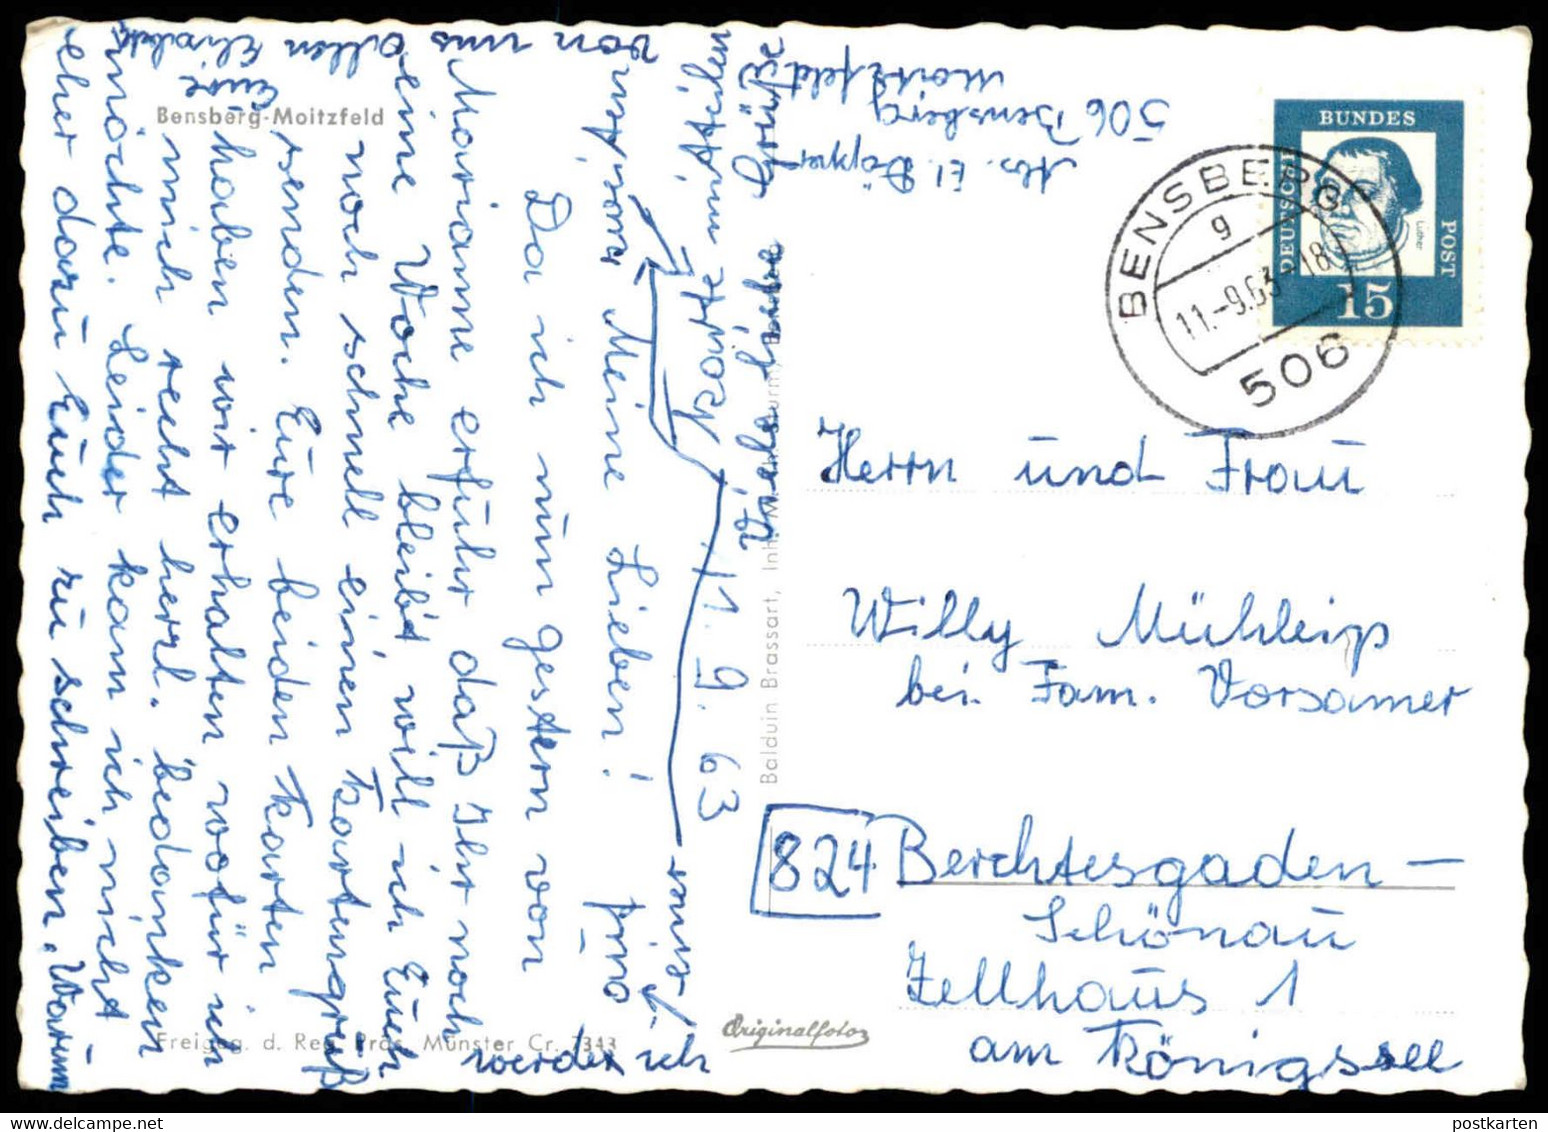 Bensberg-Moitzfeld
11. 9. 63
Meine Lieben!
Da ich nun gestern von
Marianne erfuhr daß Ihr noch
eine Woche bleibt will ich Euch
noch schnell einen Kartengruß
senden. Eure beiden Karten
haben wir erhalten wofür ich
mich recht herzl. bedanken
möchte. Leider kam ich nicht
eher dazu Euch zu schreiben. Warum
werde ich
Viele liebe Grüße
von uns allen
Eure Elisabeth
Abs. El. Döpper
506 Bensberg
Moitzfeld
Balduin Brassart, Inh.
Freigeg. d. Reg. Präs. Münster Cr. 7343
Originalfoto
DEUTSCHE
BUNDES
POST
Luther
15
BENSBERG
g
11.-9.63-18
506
Herrn und Frau
Willy Mühleip
bei Fam. Vorsamer
824 Berchtesgaden –
Schönau
Zellhaus 1
am Königssee
postkarten